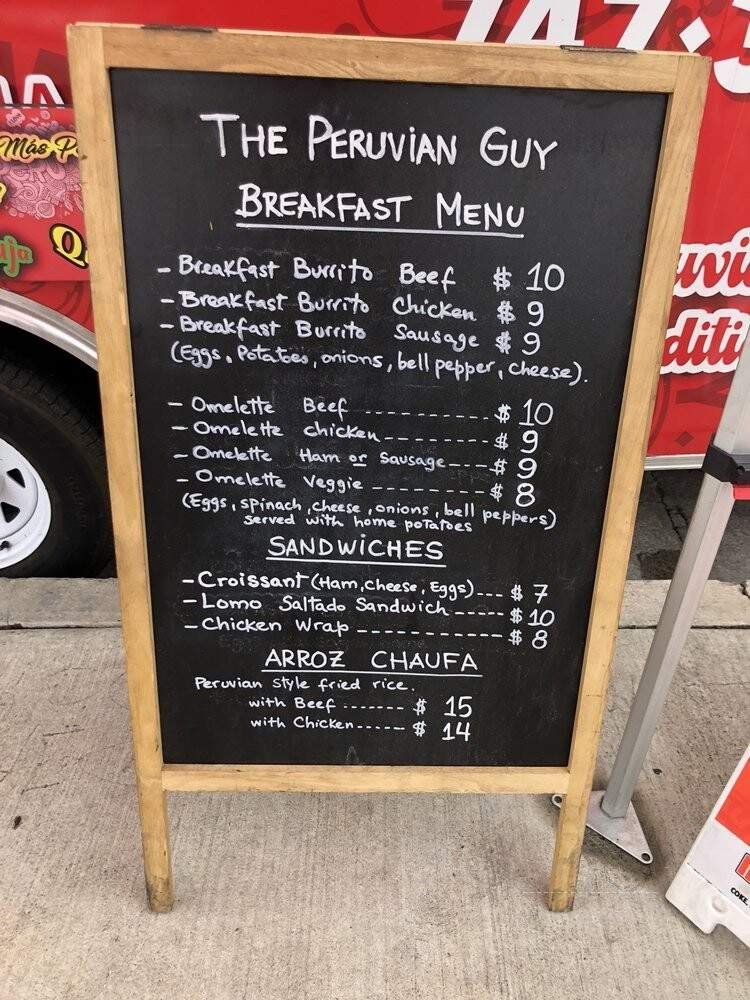 747·3
Más P
THE PERUVIAN GUY
BREAKFAST MENU
- Breakfast Burrito Beef $ 10
- Breakfast Burrito Chicken $ 9
- Breakfast Burrito Sausage $ 9
(Eggs, Potatoes, onions, bell pepper, cheese).
- Omelette Beef ------------- $ 10
- Omelette chicken --------- $ 9
- Omelette Ham or Sausage --- $ 9
- Omelette Veggie ---------- $ 8
(Eggs, spinach, cheese, onions, bell peppers)
served with home potatoes
SANDWICHES
- Croissant (Ham, cheese, Eggs) --- $ 7
- Lomo Saltado Sandwich ----- $ 10
- Chicken Wrap ------------- $ 8
ARROZ CHAUFA
Peruvian Style fried rice.
with Beef ------- $ 15
with Chicken ------ $ 14
COKE,